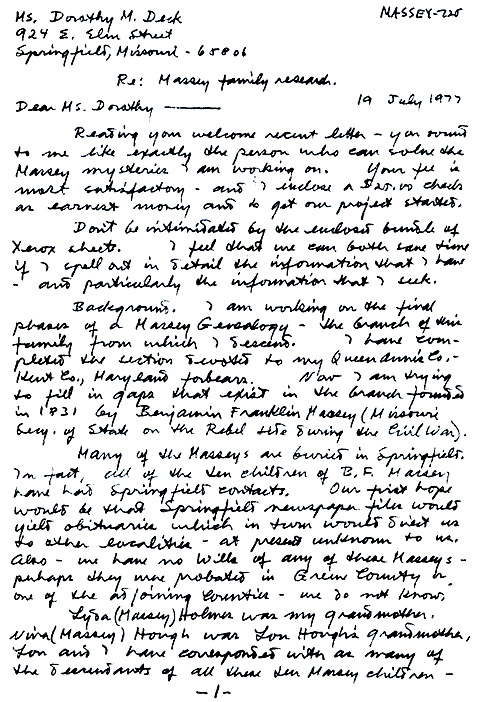 Ms. Dorothy M. Deck
MASSEY-725
924 E. Elm Street
Springfield, Missouri - 65806
Re: Massey family research.
Dear Ms. Dorothy ——
19 July 1977
Reading your welcome recent letter - you sound
to me like exactly the person who can solve the
Massey mysteries I am working on. Your fee is
most satisfactory - and I inclose a $25.00 check
as earnest money and to get our project started.
Don't be intimidated by the enclosed bundle of
Xerox sheets. I feel that we can both save time
if I spell out in detail the information that I have
- and particularly the information that I seek.
Background. I am working on the final
phases of a Massey Genealogy - the branch of this
family from which I descend. I have com-
pleted the section devoted to my Queen Anne Co.-
Kent Co., Maryland forbears. Now I am trying
to fill in gaps that exist in the branch founded
in 1831 by Benjamin Franklin Massey (Missouri
Secy. of State on the Rebel side during the Civil War).
Many of the Masseys are buried in Springfield.
In fact, all of the ten children of B.F. Massey
have had Springfield contacts. Our first hope
would be that Springfield newspaper files would
yield obituaries which in turn would direct us
to other localities - at present unknown to us.
Also - we have no Wills of any of these Masseys -
perhaps they were probated in Green County or
one of the adjoining Counties - we do not know.
Lyda (Massey) Holmes was my grandmother.
Nina (Massey) Hough was Lon Hough's grandmother,
Lon and I have corresponded with as many of
the descendants of all these ten Massey children -
-1-